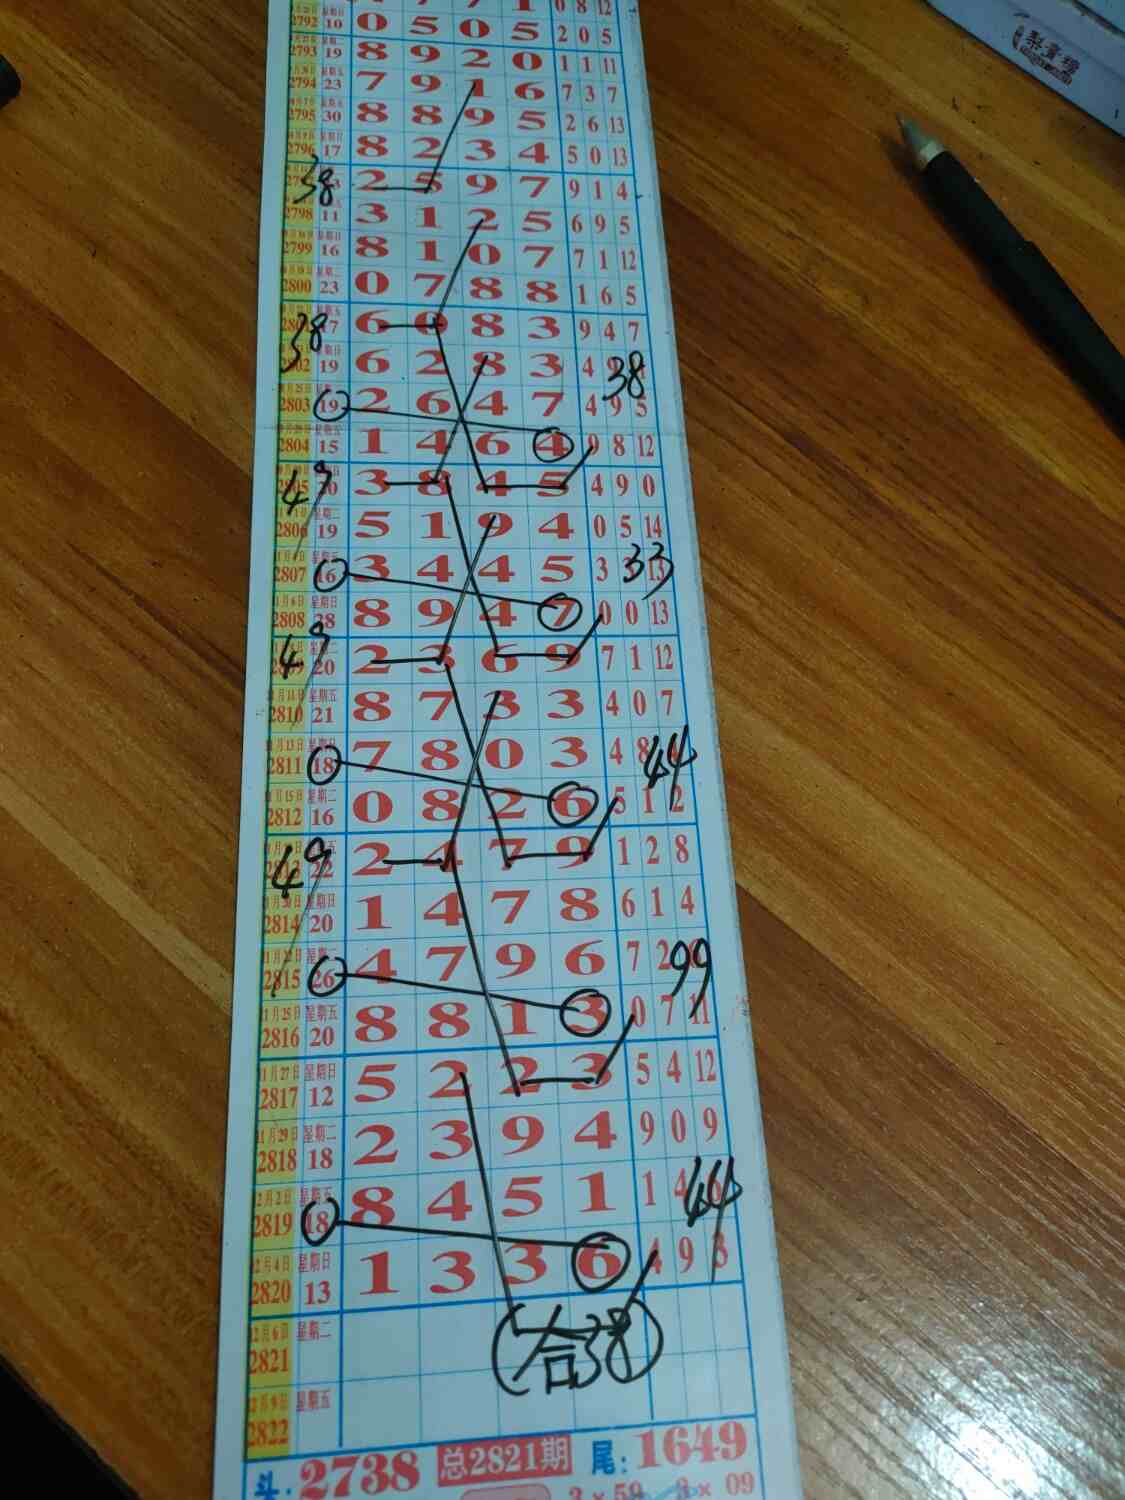 2792 10 0 5 0 5 2 0 5
2793 19 8 9 2 0 1 1 11
2794 23 7 9 1 6 7 3 7
2795 30 8 8 9 5 2 6 13
2796 17 8 2 3 4 5 0 13
38 2 5 9 7 9 1 4
2798 11 3 1 2 5 6 9 5
2799 16 8 1 0 7 7 1 12
2800 23 0 7 8 8 1 6 5
38 6 0 8 3 9 4 7
19 6 2 8 3 4 38
2803 19 2 6 4 7 4 9 5
2804 15 1 4 6 4 0 8 12
49 3 8 4 5 4 9 0
2806 19 5 1 9 4 0 5 14
2807 16 3 4 4 5 3 33
2808 28 8 9 4 7 0 0 13
49 20 2 3 6 9 7 1 12
2810 21 8 7 3 3 4 0 7
11月13日 星期日
2811 18 7 8 0 3 4 8 44
11月15日 星期二
2812 16 0 8 2 6 5 1 2
49 22 2 4 7 9 1 2 8
2814 20 1 4 7 8 6 1 4
2815 26 4 7 9 6 7 2 99
11月25日 星期五
2816 20 8 8 1 3 0 7 11
11月27日 星期日
2817 12 5 2 2 3 5 4 12
11月29日 星期二
2818 18 2 3 9 4 9 0 9
12月2日 星期五
2819 18 8 4 5 1 1 4 44
12月4日 星期日
2820 13 1 3 3 6 4 9 3
12月6日 星期二
2821 (合38)
12月9日 星期五
2822
头:2738 总2821期 尾:1649